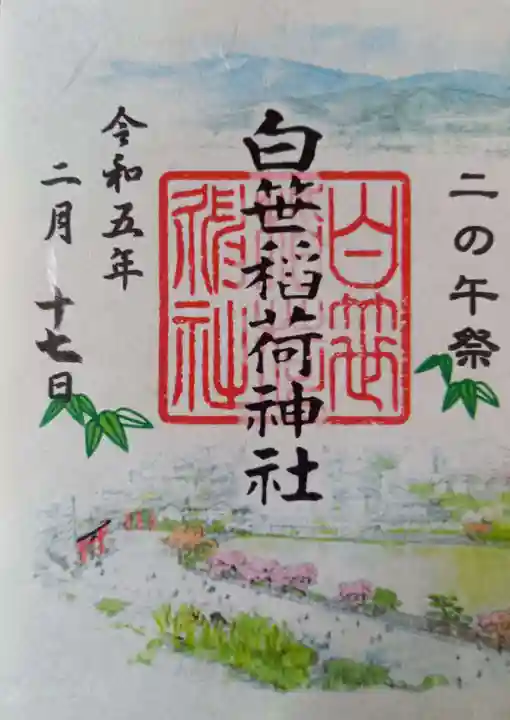 二の午祭
白笹稲荷神社
白笹
稲荷
神社
令和五年
二月十七日